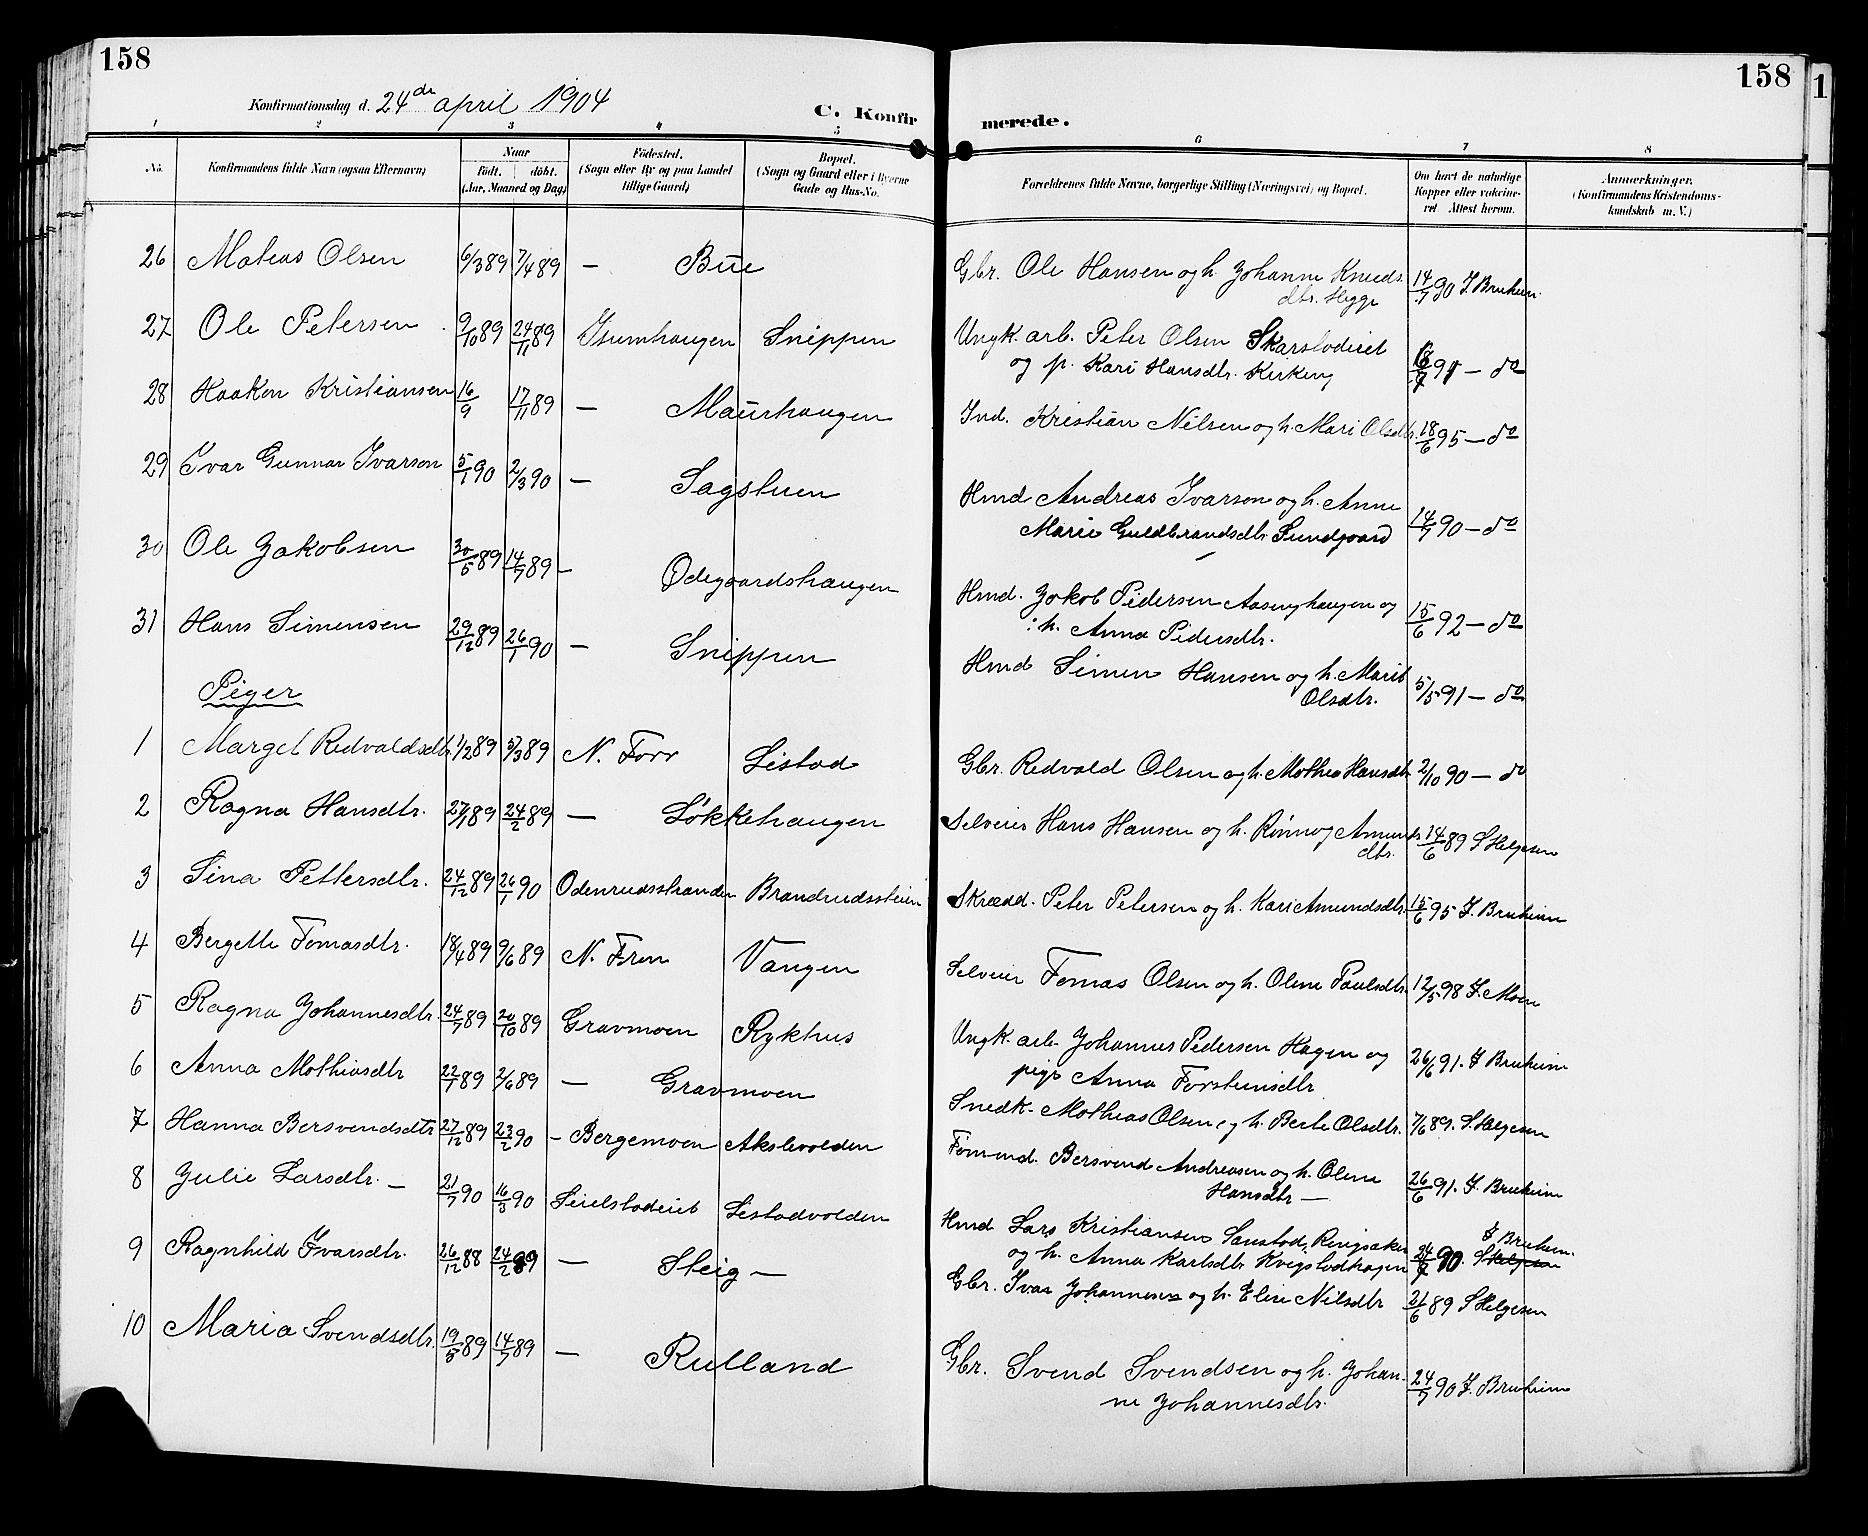 158
158
1
Konfirmationsdag d. 24de april 1904
C. Konfirmerede.
1 2 3 4 5 6 7 8
No. Konfirmandens fulde Navn (ogsaa Efternavn) Naar födt. döbt. (Aar, Maaned og Dag) Födested. (Sogn eller By og paa Landet tillige Gaard) Bopæl. (Sogn og Gaard eller i Byerne Gade og Hus-No. Forældrenes fulde Navne, borgerlige Stilling (Næringsvei) og Bopæl. Om havt de naturlige Kopper eller vakcineret Attest herom. Anmærkninger. (Konfirmandens Kristendomskundskab m. V.)
26 Mateas Olsen 6/3 89 7/4 89 — Bue Gbr. Ole Hansen og h. Johanne Knuds.dtr. Hygge 14/7 90 J. Bruheim
27 Ole Petersen 9/10 89 24/11 89 Isumhaugen Snippen Ungk. arb. Peter Olsen Skarstadeiet
og p. Kari Hansdtr. Kirkeng — do
28 Haakon Kristiansen 16/9 17/11 89 — Maurhaugen Ind. Kristian Nilsen og h. Mari Olsdtr. 18/6 95 — do
29 Ivar Gunnar Ivarson 5/1 90 2/3 90 — Sagstuen Hmd Andreas Ivarson og h. Anne
Marie Guldbrandsdtr Sundgaard 14/7 90 — do
30 Ole Jakobsen 30/5 89 14/7 89 — Odegaardshaugen Hmd. Jakob Pedersen Aasenghaugen og
h. Anna Pedersdtr. 15/6 92 — do
31 Hans Simensen 29/12 89 26/1 90 — Snippen Hmd Simen Hansen og h. Marit
Olsdtr. 5/5 91 — do
Piger
1 Marget Redvaldsdtr 1/2 89 5/3 89 N. Forr Listad Gbr. Redvald Olsen og h. Mathea Hansdtr 2/10 90 — do
2 Ragna Hansdtr. 27/1 89 24/2 89 — Løkkehaugen Selveier Hans Hansen og h. Rønnog Amunds
dtr. 14/6 89 S Helgesen
3 Sina Pettersdtr. 24/12 89 26/1 90 Odenrudsstranden Brandrudssteien Skrædd. Peter Petersen og h. Kari Amundsdtr. 15/6 95 J. Bruheim
4 Bergette Tomasdtr. 18/4 89 9/6 89 N. Fron Vangen Selveier Tomas Olsen og h. Oline Paulsdtr. 12/5 98 J. Moen
5 Ragna Johannesdtr. 24/7 89 20/10 89 Gravmoen Rykhus Ungk. arb. Johannes Pedersen Hagen og
pige Anna Torsteinsdtr 26/6 91. J Bruheim
6 Anna Mathiasdtr 22/1 89 2/6 89 — Gravmoen Snedk. Mathias Olsen og h. Berte Olsdtr. 7/6 89. S. Helgesen
7 Hanna Bersvendsdtr 27/12 89 23/2 90 — Bergemoen Akslevolden Tømmd. Bersvend Andreasen og h. Oline
Hansdtr — 26/6 91. J. Bruheim
8 Julie Larsdtr. — 21/7 90 16/3 90 Seielstadeiet Listadvolden Hmd Lars Kristiansen Sanstad, Ringsaker
og h. Anna Karlsdtr Kvigstadhagen 24/7 90. J Bruheim.
9 Ragnhild Ivarsdtr. 26/12 88 24/2 89 — Steig — Gbr. Ivar Johannesen og h. Elise Nilsdtr 21/6 89 S Helgesen
10 Maria Svendsdtr. 19/5 89 14/7 89 — Rulland Gbr. Svend Svendsen og h. Johan-
ne Johannesdtr. 24/7 90 J. Bruheim